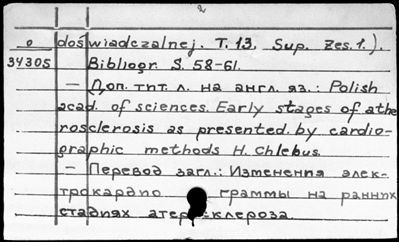 2
o doświadczalnej. T. 13, Sup. Zes. 1.).
34305 Bibliogr. S. 58-61.
— Доп. тит. л. на англ. яз.: Polish
acad. of sciences. Early stages of athe
rosclerosis as presented by cardio-
graphic methods H. Chlebus.
— Перевод загл.: Изменения элек-
трокардио граммы на ранних
стадиях атеросклероза.